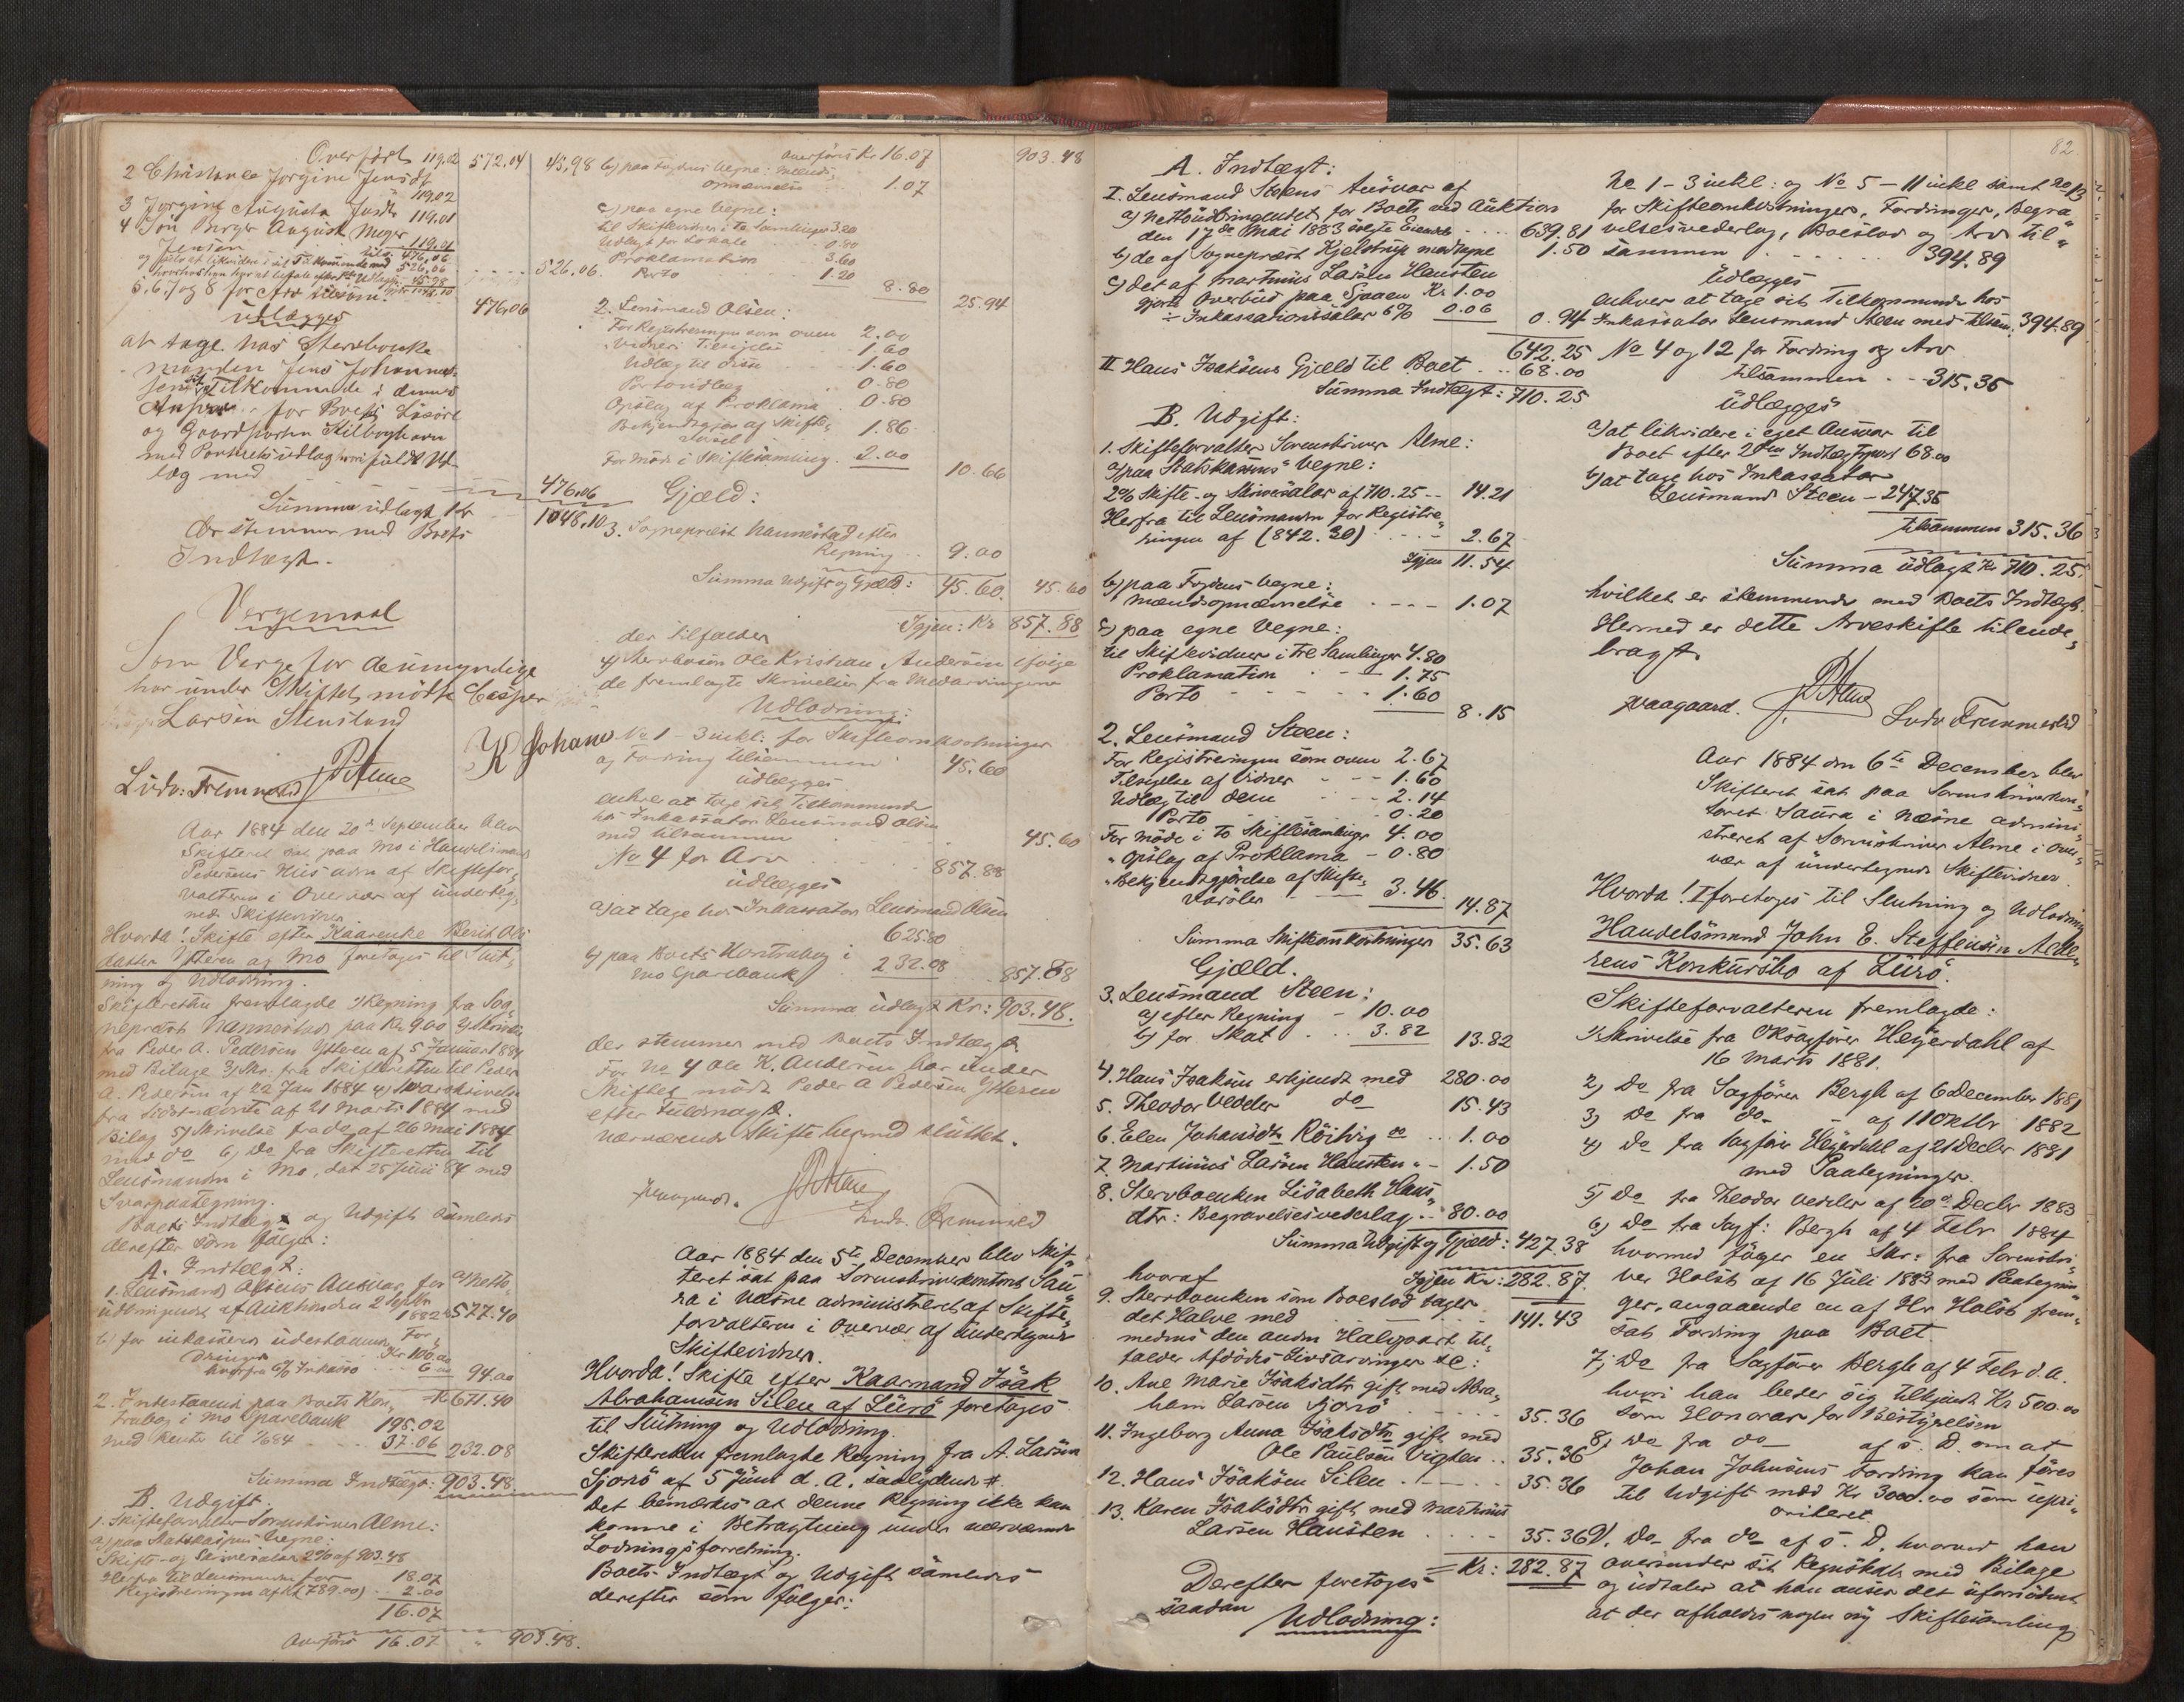 Overført 119.02 572.04
2 Christence Jorgine Jensdt
119.02
3 Jorgine Augusta Jensdt 119.01
4 Jon Birger August Meyer
Jensen 119.01
tils. 476.06
526.06
5, 6, 7 og 8 for Arv tilsam: 476.06
udlægges
at tage hos Sterbboenke
manden Jens Johannes
Jensen Tilkommende i dennes
Ansvar for Boets Løsøre
og Gaardparten
med
læg med 476.06
Summa udlagt Kr 1048.10
der stemmer med Boets
Indtægt.
Vergemaal
Som Verge for de umyndige
har under Skiftet mødt Casper
Larsen Stensland
K Johans
Ludv: Tremmesli
Aar 1884 den 20de September blev
Skifteret sat paa Mo i Handelsmand
Pedersens Hus adm af Skiftefor-
valteren i Overvær af underteg-
nede Skiftevidner
Hvorda! Skifte efter Kaarenke Berit Ols
datter Ytteren af Mo foretoges til Slut-
ning og Udlodning.
Skifteretten fremlagde 1) Regning fra Sog-
nepræst Nannestad paa Kr 9.00 2) Skrivelse
fra Peder A. Pedersen Ytteren af 5 Januar 1884
med Bilage 3) Skr: fra Skifteretten til Peder
A. Pedersen af 22 Jan 1884 4) Svarskrivelse
fra sidstnævnte af 21 Marts 1884 med
Bilag 5) Skrivelse fra do af 26 Mai 1884
med do 6) Do fra Skifteretten til
Lensmanden i Mo, dat 25 Juni 84 med
Svarpaategning.
Boets Indtægt og Udgift saaledes
derefter som følger:
A. Indtægt:
1. Lensmand Olsens Ansvar for a) Netto-
udbringendet af Auktionen 2 Septbr
1882 577.40
b) for inkasserede udestaaende For-
dringer Kr 100.00
herfra 6% Inkasso 6.00 94.00
Kr 671.40
2. Indestaaende paa Boets Kon-
trabog i Mo Sparebank 195.02
med Renter til 1/8 84 37.06 232.08
Summa Indtægt: 903.48
B. Udgift.
1. Skifteforvalter Sorenskriver Alme:
a) paa Statskassens Vegne:
Skifte- og Skriversalær 2% af 903.48
18.07
Herfra til Lensmanden for
Registreringen af (Kr 789.00) 2.00
16.07
Overføres 16.07 " 903.48.
Overføres Kr 16.07 903.48
45.98 b) paa Fogdens Vegne: Mænds-
opnævnelse 1.07
c) paa egne Vegne:
til Skiftevidner i to Samlinger 3.20
Udlagt for Lokale 0.80
Proklamation 3.60
Porto 1.20
8.80 25.94
2. Lensmand Olsen:
For Registreringen som oven 2.00
Vidners Tilsigelse 1.60
Udlæg til disse 1.60
Portoudlæg 0.80
Opslag af Proklama 0.80
Bekjendtgjør af Skifte-
varsel 1.86
For Møde i Skiftesamling 2.00
10.66
Gjæld:
3. Sognepræst Nannestad efter
Regning 9.00
Summa Udgift og Gjæld: 45.60. 45.60
Igjen: Kr 857.88
der tilfalder
4) Sterbboen Ole Kristian Andersen ifølge
de fremlagte Skrivelser fra Medarvingerne
Udlodning:
No 1 - 3 inkl: for Skifteomkostninger
og Fordring tilsammen 45.60
udlægges
enhver at tage sit Tilkommende
hos Inkassator Lensmand Olsen
med tilsammen 45.60
No 4 for Arv 857.88
udlægges
a) at tage hos Inkassator Lensmand Olsen
625.80
b) paa Boets Kontrabog i
Mo Sparebank 232.08 857.88
Summa udlagt Kr: 903.48.
der stemmer med Boets Indtægt.
For No 4 Ole K. Andersen har under
Skiftet mødt Peder A Pedersen Ytteren
efter Fuldmagt.
Nærværende Skifte hermed sluttet.
Aar 1884 den 5te December blev Skif-
teret sat paa Sorenskriverkontoret Sau-
ra i Næsne administreret af Skifte-
forvalteren i Overvær af undertegnede
Skiftevidner.
Hvorda! Skifte efter Kaarmand Isak
Abrahamsen Silen af Lurø foretoges
til Slutning og Udlodning.
Skifteretten fremlagde Regning fra A. Larsen
Sjonø af 5 Juni d. A. saalydende #.
Det bemærkes at denne Regning ikke kan
komme i Betragtning under nærværende
Lodningsforretning.
Boets Indtægt og Udgift saaledes
derefter som følger:
82.
A. Indtægt:
I. Lensmand Steens Ansvar af
a) Nettoudbringendet for Boets ved Auktion
den 17de Mai 1883 solgte Eiendele 639.81
b) de af Sognepræst Kjelstrup modtagne 1.50
c) det af Martinus Larsen Hausten
gjorte Overbud paa Kr 1.00
÷ Inkassationssalær 6% 0.06 0.94
642.25
II Hans Isaksens Gjæld til Boet 68.00
Summa Indtægt: 710.25
B. Udgift:
1. Skifteforvalter Sorenskriver Alme:
a) paa Statskassens Vegne:
2% Skifte- og Skriversalær af 710.25 14.21
Herfra til Lensmanden for Registre-
ringen af (842.30) 2.67
Igjen 11.54
b) paa Fogdens Vegne:
Mændsopnævnelse 1.07
c) paa egne Vegne:
til Skiftevidner i tre Samlinger 4.80
Proklamation 1.75
Porto 1.60
8.15
2. Lensmand Steen:
For Registreringen som oven 2.67
Tilsigelse af Vidner 1.60
Udlæg til dem 2.14
Porto 0.20
For Møde i to Skiftesamlinger 4.00
" Opslag af Proklama - 0.80
" Bekjendtgjørelse af Skifte-
varsler 3.46 14.87
Summa Skifteomkostninger 35.63
Gjæld.
3. Lensmand Steen:
a) efter Regning - 10.00
b) for Skat 3.82 13.82
4. Hans Isaksen erkjendt med 280.00
5. Theodor Vedeler do 15.43
6. Elen Johansdtr Röitvig do 1.00
7. Martinus Larsen Hausten " 1.50
8. Sterboenken Lisabeth Hans-
dtr: Begravelsesvederlag 80.00
Summa Udgift og Gjæld: 427.38
hvoraf Igjen Kr: 282.87.
9. Sterboenken som Boeslod tager
det Halve med 141.43
medens den anden Halvpart til-
falder Afdødes Livsarvinger sc:
10. Ane Marie Isaksdtr gift med Abra-
ham Larsen Sjonø 35.36
11. Ingeborg Anna Isaksdtr gift med
Ole Paulsen Vigten 35.36
12. Hans Isaksen Silen 35.36
13. Karen Isaksdtr gift med Martinus
Larsen Hausten 35.36
Kr: 282.87
Derefter foretoges
saadan
Udlodning:
No 1 - 3 inkl: og No 5 - 11 inkl samt No 13
for Skifteomkostninger, Fordringer, Begra-
velsesvederlag, Boeslod og Arv til-
sammen 394.89
udlægges
enhver at tage sit Tilkommende hos
Inkassator Lensmand Steen med tilsam. 394.89
No 4 og 12 for Fordring og Arv
tilsammen 315.36
udlægges
a) at likvidere i eget Ansvar til
Boet efter 2den Indtægtspost 68.00
b) at tage hos Inkassator
Lensmand Steen - 247.36
tilsammen 315.36
Summa udlagt Kr 710.25.
hvilket er stemmende med Boets Indtægt.
Hermed er dette Arveskifte tilende-
bragt.
Aar 1884 den 6te December blev
Skifteret sat paa Sorenskriverkon-
toret Saura i Næsne admini-
streret af Sorenskriver Alme i Over-
vær af undertegnede Skiftevidner.
Hvorda! foretoges til Slutning og Udlodning
Handelsmand John E. Steffensen Alde-
rens Konkursbo af Lurø.
Skifteforvalteren fremlagde:
1) Skrivelse fra Oksagfører Heyerdahl af
16 Marts 1881.
2) Do fra Sagfører Bergh af 6 December 1881
3) Do fra do - af 11 Oktbr 1882
4) Do fra Sagfører Heyerdahl af 21 Decbr 1881
med Paategninger.
5) Do fra Theodor Vedeler af 20de Decbr 1883
6) Do fra Sagf: Bergh af 4 Febr 1884
hvormed følger en Skr: fra Sorenskri-
ver Holst af 16 Juli 1883 med Paategnin-
ger, angaaende en af Hr Holst frem-
sat Fordring paa Boet.
7) Do fra Sagfører Bergh af 4 Febr d. A.
hvori han beder sig tilkjendt Kr 500.00
som Honorar for Bestyrelsen
8) Do fra do af s. D. om at
Johan Johnsens Fordring kan føres
til Udgift med Kr 3000.00 som upri-
oriteret.
9). Do fra do af s. D. hvorved han
oversender sit Regnskab med Bilage
og udtaler at han anser det ufornødent
at der afholdes nogen ny Skiftesamling